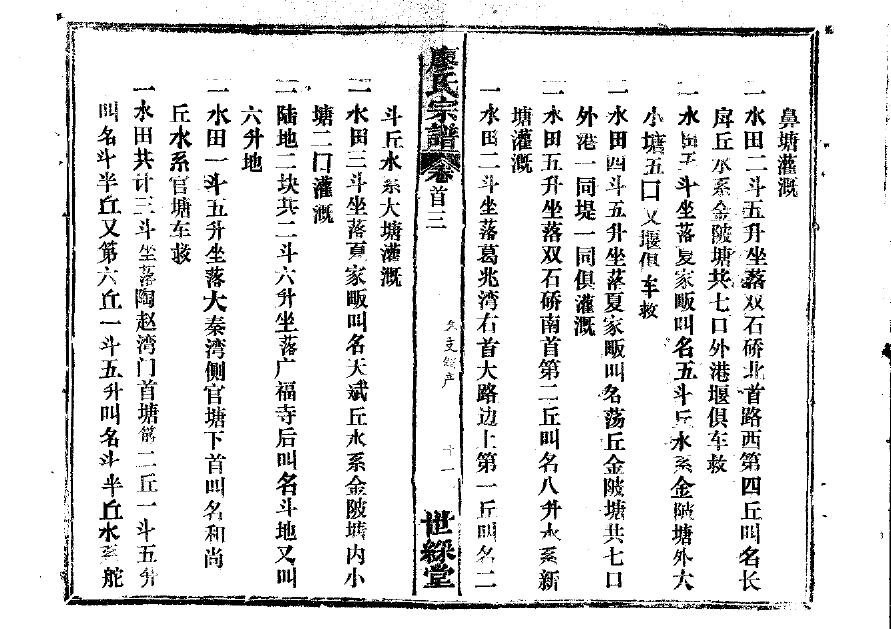 鼻塘灌溉
一水田二斗五升坐落双石硚北首路西第四丘叫名长
戽丘水系金陂塘共七口外港堰俱车救
一水田五斗坐落夏家畈叫名五斗丘水系金陂塘外大
小塘五口又堰俱车救
一水田四斗五升坐落夏家畈叫名荡丘金陂塘共七口
外港一同堤一同俱灌溉
一水田五升坐落双石硚南首第二丘叫名八升水系新
塘灌溉
一水田二斗坐落葛兆湾右首大路边上第一丘叫名二
廖氏宗譜 卷首三 支 产 十一 世綵堂
斗丘水系大塘灌溉
一水田三斗坐落夏家畈叫名天斌丘水系金陂塘内小
塘二口灌溉
一陆地二块共二斗六升坐落广福寺后叫名斗地又叫
六升地
一水田一斗五升坐落大秦湾侧官塘下首叫名和尚
丘水系官塘车救
一水田共计三斗坐落陶赵湾门首塘第二丘一斗五升
叫名斗半丘又第六丘一斗五升叫名斗半丘水系舵